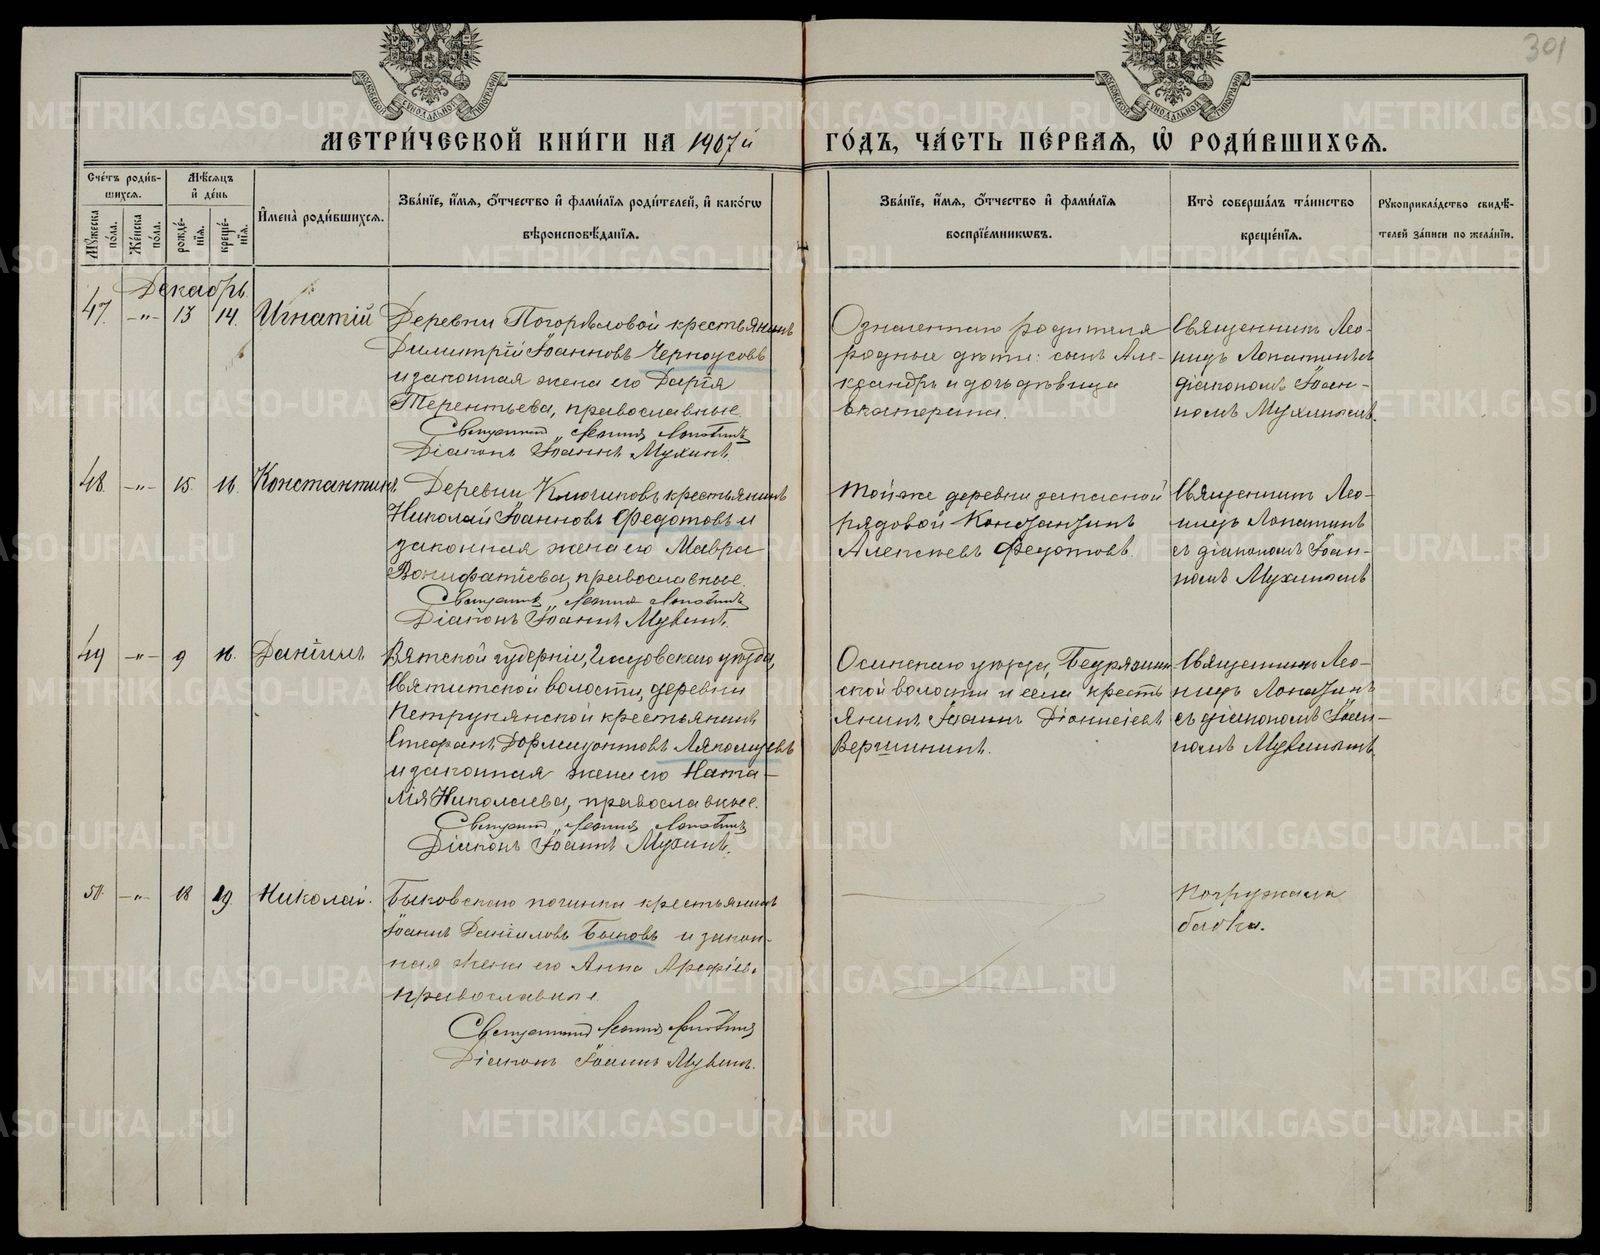 301
МЕТРИ́ЧЕСКОЙ КНИ́ГИ НА 1907й ГО́ДЪ, ЧА́СТЬ ПЕ́РВАѦ, Ѡ҆ РОДИ́ВШИХСѦ.
Сче́тъ роди́в-
шихсѧ.
Мѣ́сѧцъ
и҆ де́нь
Мꙋ́жеска
по́ла.
Же́нска
по́ла.
рожде́-
нїѧ.
креще́-
нїѧ.
И҆мена̀ роди́вшихсѧ.
Зва́нїе, и҆́мѧ, ѻ҆́тчество и҆ фами́лїѧ роди́телей, и҆ како́гѡ
вѣроисповѣ́данїѧ.
Зва́нїе, и҆́мѧ, ѻ҆́тчество и҆ фами́лїѧ
воспрїе́мникѡвъ.
Кто̀ соверша́лъ та́инство
креще́нїѧ.
Рꙋкоприкла́дство свидѣ́-
телей за́писи по жела́нїю.
Декабрь
47. -„- 13 14. Игнатій
Деревни Погорѣловой крестьянинъ
Димитрій Іоанновъ Черноусовъ
и законная жена его Дарія
Терентьева, православные.
Священникъ Леонидъ Лопатинъ
Діаконъ Іоаннъ Мухинъ.
Означеннаго родителя
родные дѣти: сынъ Але-
ксандръ и дочь дѣвица
Екатерина.
Священникъ Лео-
нидъ Лопатинъ съ
діакономъ Іоан-
номъ Мухинымъ.
48. -„- 15. 16. Константинъ
Деревни Ключиковъ крестьянинъ
Николай Іоанновъ Федотовъ и
законная жена его Мавра
Вонифатіева, православные.
Священникъ Леонидъ Лопатинъ
Діаконъ Іоаннъ Мухинъ.
Той же деревни запасной
рядовой Константинъ
Алексѣевъ Федотовъ.
Священникъ Лео-
нидъ Лопатинъ
съ діакономъ Іоан-
номъ Мухинымъ
49 -„- 9 16. Даніилъ
Вятской губерніи, Глазовскаго уѣзда,
Святитской волости, деревни
Петрунянской крестьянинъ
Стефанъ Дормидонтовъ Ляполщевъ
и законная жена его Ната-
лія Николаева, православные.
Священникъ Леонидъ Лопатинъ
Діаконъ Іоаннъ Мухинъ.
Осинскаго уѣзда, Бедряжин
ской волости и села кресть
янинъ Іоаннъ Діонисіевъ
Вершининъ.
Священникъ Лео-
нидъ Лопатинъ
съ діакономъ Іоан-
номъ Мухинымъ.
50. -„- 18 19 Николай.
Быковскаго починка крестьянинъ
Іоаннъ Даніиловъ Быковъ и закон-
ная жена его Анна Арефіева
православные.
Священникъ Леонидъ Лопатинъ
Діаконъ Іоаннъ Мухинъ.
Погружала
бабка.
METRIKI.GASO-URAL.RU